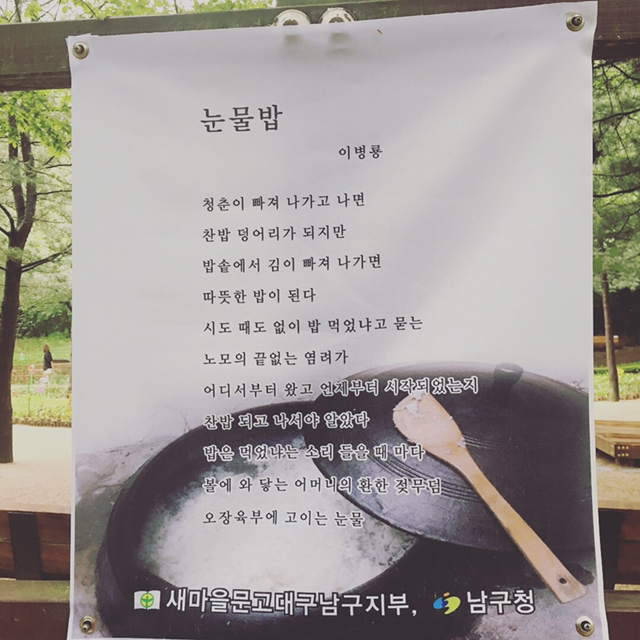 눈물밥
이병룡
청춘이 빠져 나가고 나면
찬밥 덩어리가 되지만
밥솥에서 김이 빠져 나가면
따뜻한 밥이 된다
시도 때도 없이 밥 먹었냐고 묻는
노모의 끝없는 염려가
어디서부터 왔고 언제부터 시작되었는지
찬밥 되고 나서야 알았다
밥은 먹었냐는 소리 들을 때 마다
볼에 와 닿는 어머니의 환한 젖무덤
오장육부에 고이는 눈물
새마을문고대구남구지부, 남구청